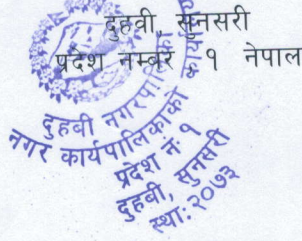 दुहवी, सुनसरी
प्रदेश नम्बर १ नेपाल
दुहबी नगरपालिका
नगर कार्यपालिकाको कार्यालय
प्रदेश नं. १
दुहबी, सुनसरी
स्था: २०७३